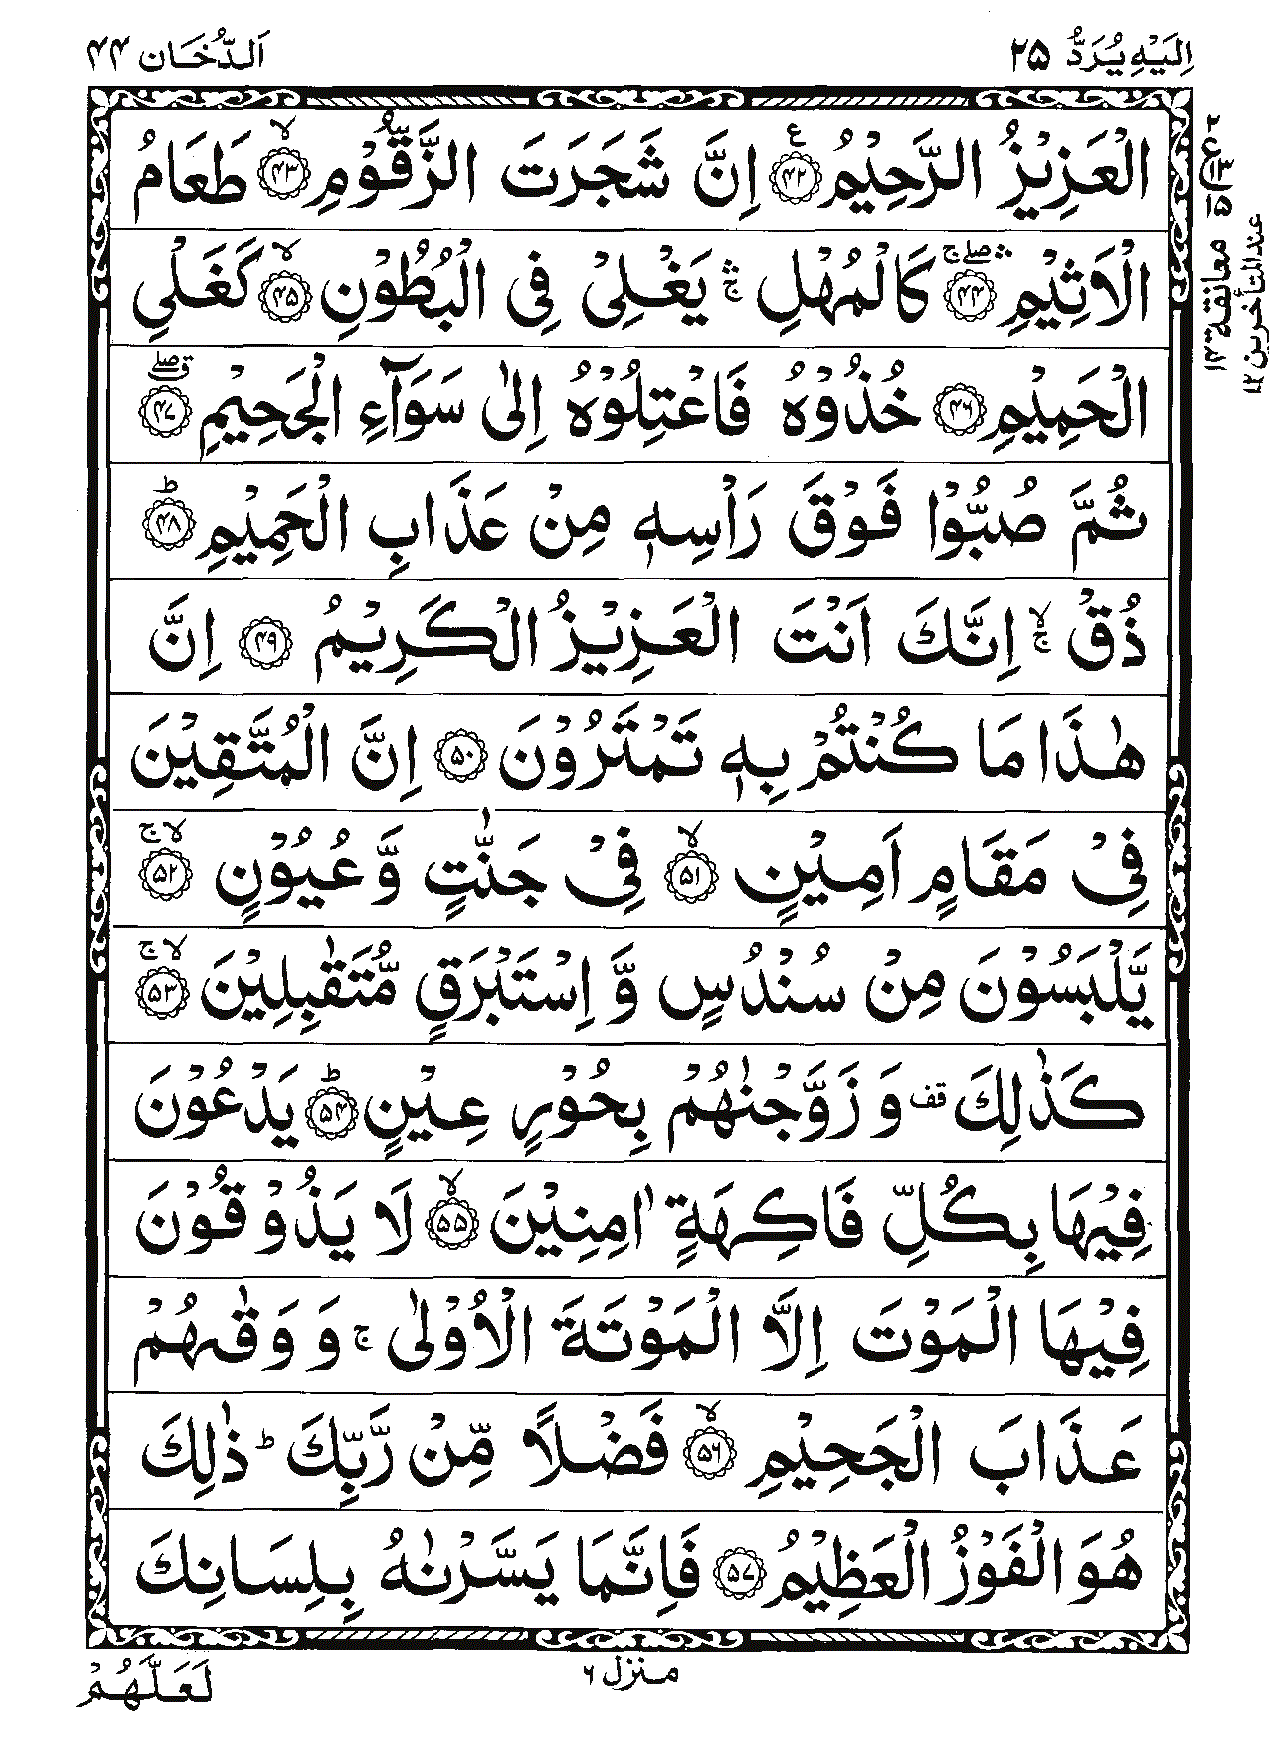 اِلَيْهِ يُرَدُّ ۲۵
اَلدُّخَان ۴۴
الْعَزِيْزُ الرَّحِيْمُ ﴿۴۲﴾ۧ اِنَّ شَجَرَتَ الزَّقُّوْمِ ﴿۴۳﴾ۙ طَعَامُ
الْاَثِيْمِ ﴿۴۴﴾ۛۚۖ كَالْمُهْلِ ۛۚ يَغْلِیْ فِی الْبُطُوْنِ ﴿۴۵﴾ۙ كَغَلْیِ
الْحَمِيْمِ ﴿۴۶﴾ خُذُوْهُ فَاعْتِلُوْهُ اِلٰی سَوَآءِ الْجَحِيْمِ ﴿۴۷﴾ۖق
ثُمَّ صُبُّوْا فَوْقَ رَاْسِهٖ مِنْ عَذَابِ الْحَمِيْمِ ﴿۴۸﴾ؕ
ذُقْ ۙۚ اِنَّكَ اَنْتَ الْعَزِيْزُ الْكَرِيْمُ ﴿۴۹﴾ اِنَّ
هٰذَا مَا كُنْتُمْ بِهٖ تَمْتَرُوْنَ ﴿۵۰﴾ اِنَّ الْمُتَّقِيْنَ
فِیْ مَقَامٍ اَمِيْنٍ ﴿۵۱﴾ۙ فِیْ جَنّٰتٍ وَّعُيُوْنٍ ﴿۵۲﴾ۙۚ
يَّلْبَسُوْنَ مِنْ سُنْدُسٍ وَّاِسْتَبْرَقٍ مُّتَقٰبِلِيْنَ ﴿۵۳﴾ۙۚ
كَذٰلِكَ قف وَزَوَّجْنٰهُمْ بِحُوْرٍ عِيْنٍ ﴿۵۴﴾ؕ يَدْعُوْنَ
فِيْهَا بِكُلِّ فَاكِهَةٍ اٰمِنِيْنَ ﴿۵۵﴾ۙ لَا يَذُوْقُوْنَ
فِيْهَا الْمَوْتَ اِلَّا الْمَوْتَةَ الْاُوْلٰی ۚ وَوَقٰىهُمْ
عَذَابَ الْجَحِيْمِ ﴿۵۶﴾ۙ فَضْلًا مِّنْ رَّبِّكَ ؕ ذٰلِكَ
هُوَ الْفَوْزُ الْعَظِيْمُ ﴿۵۷﴾ فَاِنَّمَا يَسَّرْنٰهُ بِلِسَانِكَ
منزل ۶
لَعَلَّهُمْ
۲
ع
۱۵
معانقة ۱۳
عند المتأخرين ۱۲